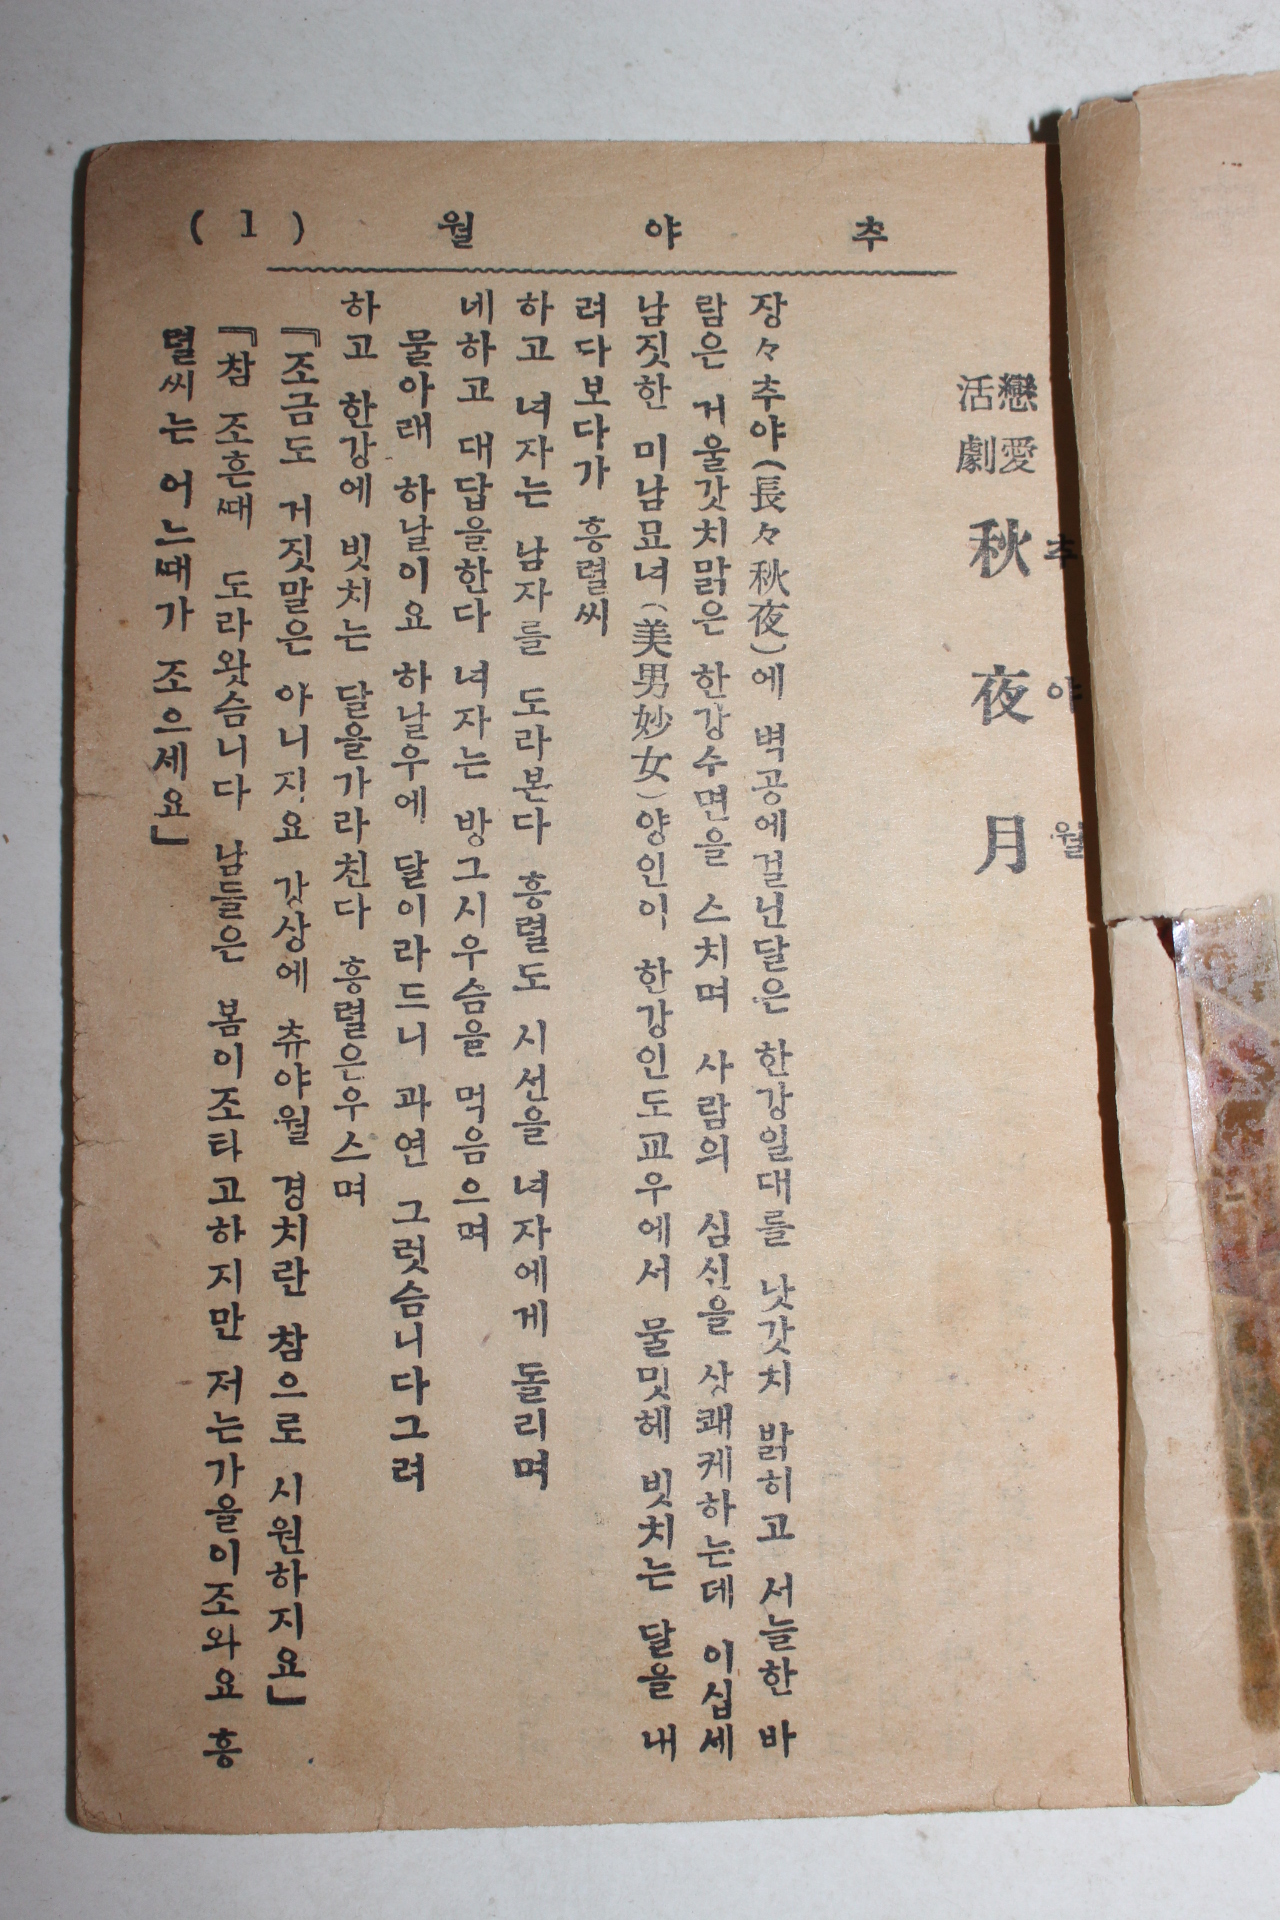 추야월 (1)
戀愛
活劇
秋夜月
추야월
장々추야(長々秋夜)에 벽공에걸닌달은 한강일대를 낫갓치 밝히고 서늘한 바
람은 거울갓치맑은 한강수면을 스치며 사람의 심신을 상쾌케하는데 이십세
남짓한 미남묘녀(美男妙女)양인이 한강인도교우에서 물밋헤 빗치는 달을 내
려다보다가 흥렬씨
하고 녀자는 남자를 도라본다 흥렬도 시선을 녀자에게 돌리며
네하고 대답을한다 녀자는 방그시우슴을 먹음으며
물아래 하날이요 하날우에 달이라드니 과연 그럿슴니다그려
하고 한강에 빗치는 달을가라친다 흥렬은우스며
『조금도 거짓말은 아니지요 강상에 츄야월 경치란 참으로 시원하지요』
『참 조흔때 도라왓슴니다 남들은 봄이조타고하지만 저는가을이조와요 흥
렬씨는 어느때가 조으세요』